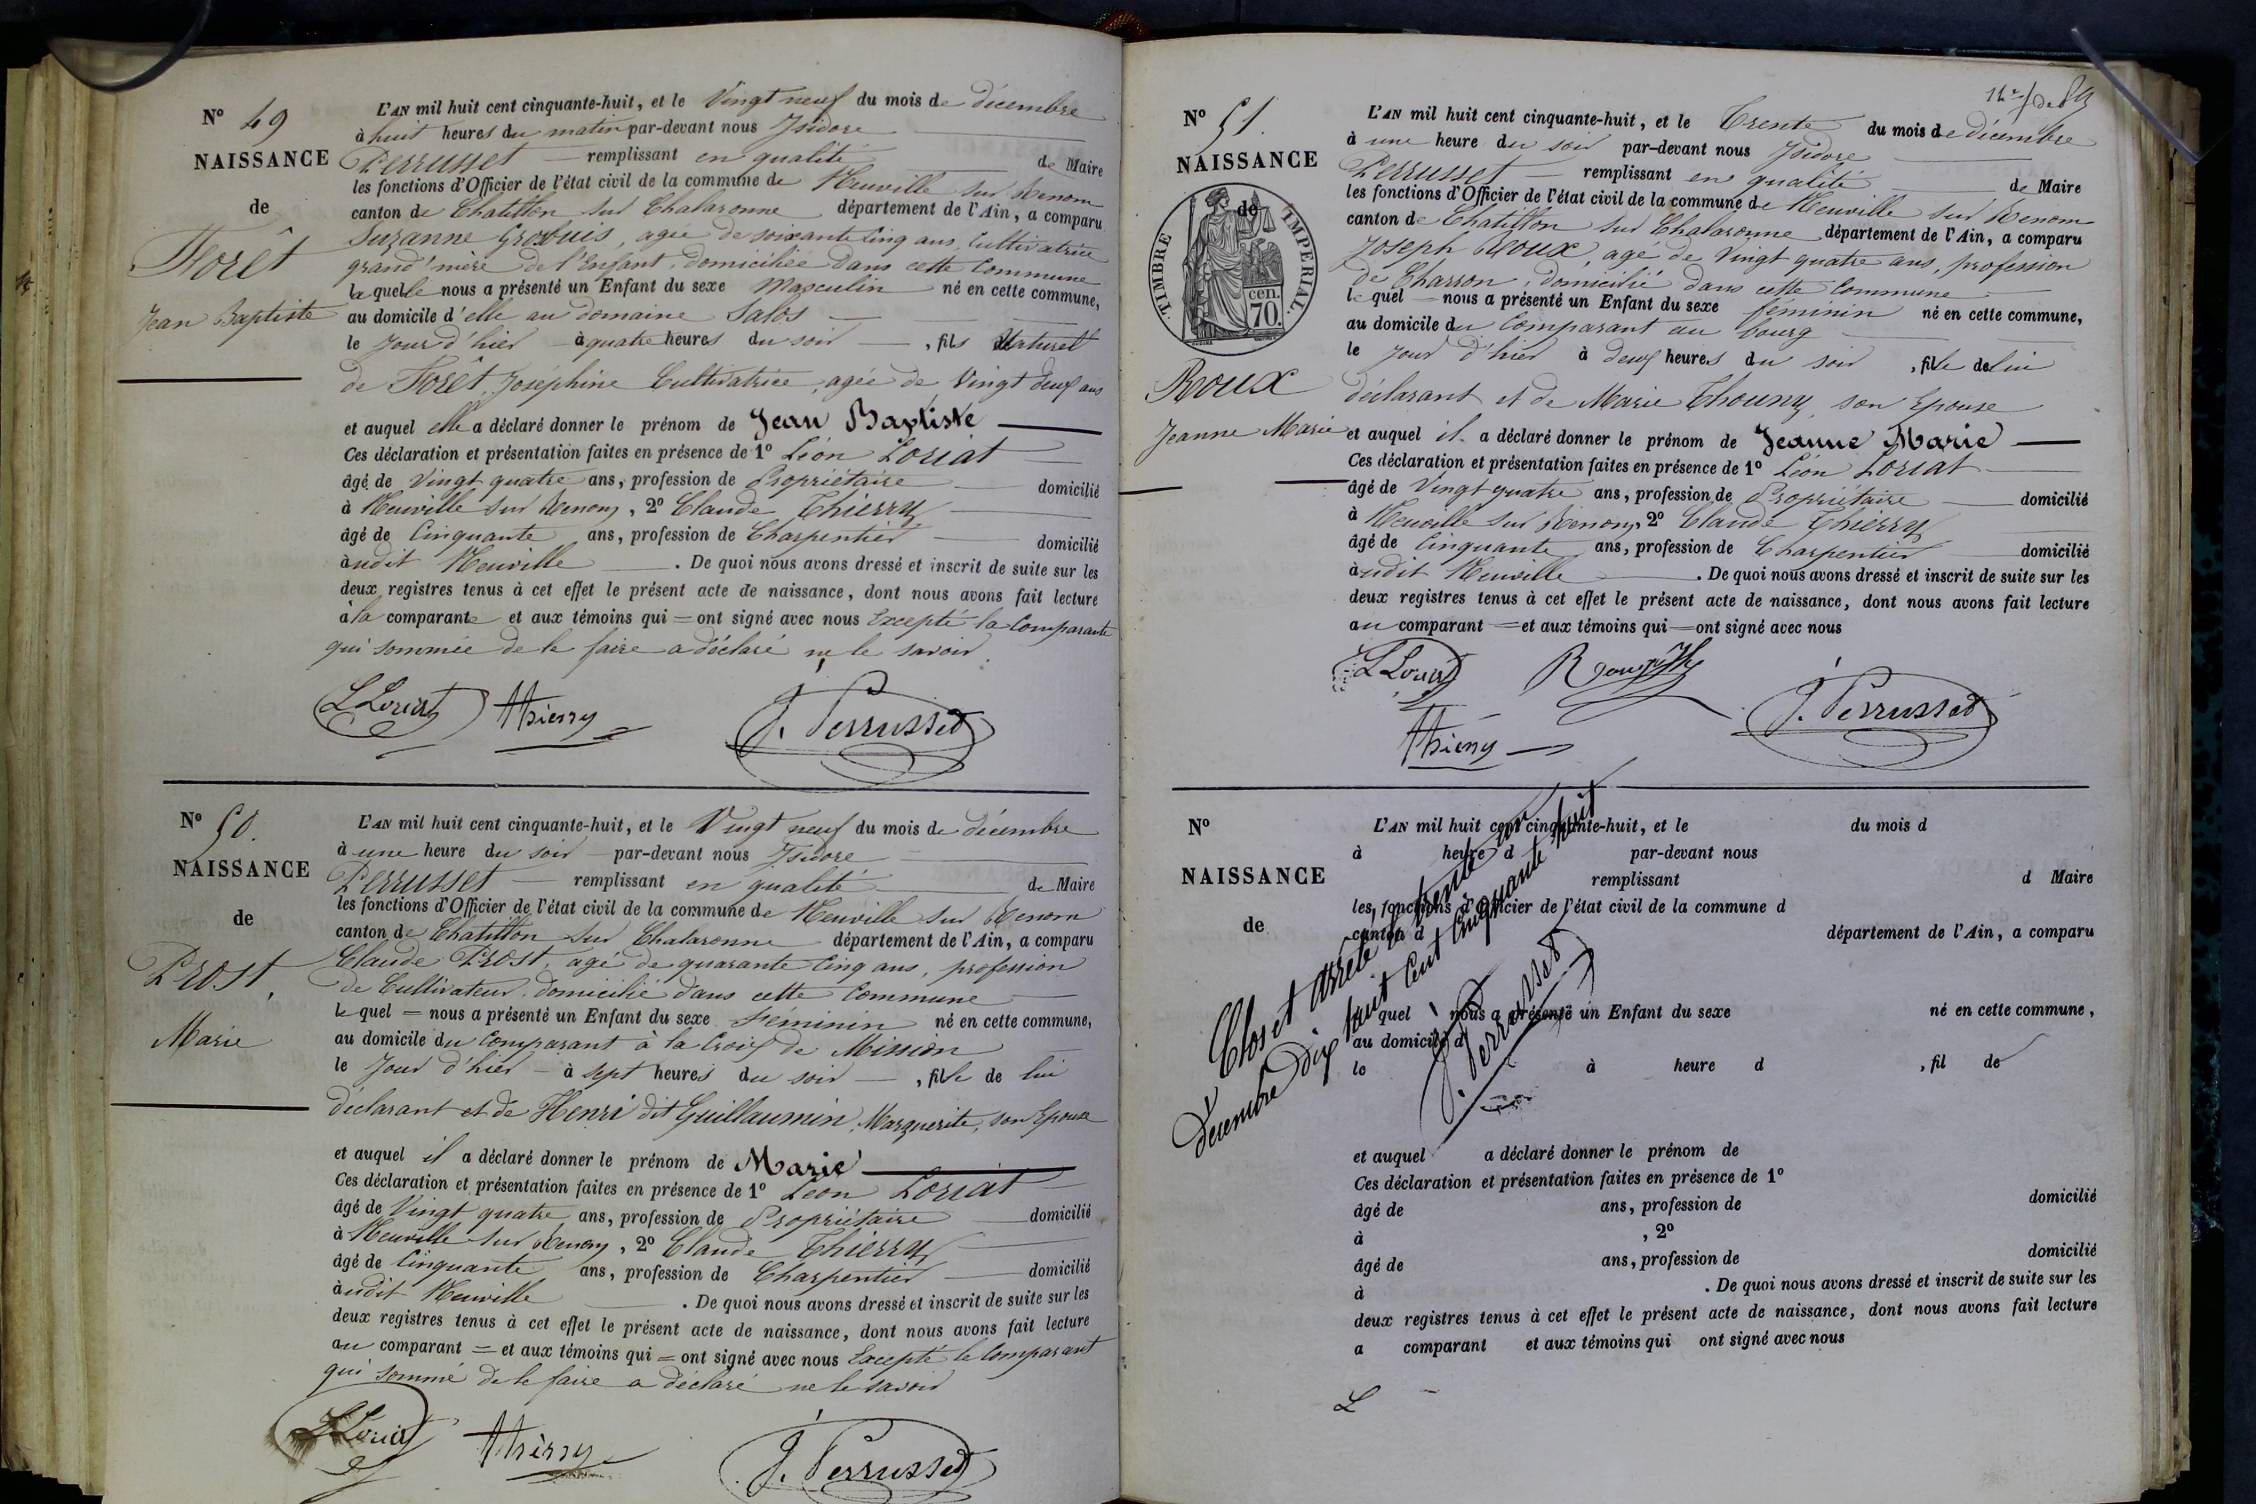 N° 49
NAISSANCE
de
Forêt
Jean Baptiste
L'AN mil huit cent cinquante-huit, et le Vingt neuf du mois de décembre
à huit heures du matin par-devant nous Isidore
Perrusset remplissant en qualité de Maire
les fonctions d'Officier de l'état civil de la commune de Neuville sur Renom
canton de Chatillon sur Chalaronne département de l'Ain, a comparu
Suzanne agée de soixante cinq ans, Cultivatrice
grand'mère de l'Enfant, domiciliée dans cette Commune
laquelle nous a présenté un Enfant du sexe Masculin né en cette commune,
au domicile d'elle au domaine Salos
le Jour d'hier à quatre heures du soir, fils Naturel
de Forêt, Joséphine Cultivatrice, agée de Vingt deux ans
et auquel elle a déclaré donner le prénom de Jean Baptiste
Ces déclaration et présentation faites en présence de 1° Léon Loriat
âgé de Vingt quatre ans, profession de Propriétaire domicilié
à Neuville sur Renom, 2° Claude Thierry
âgé de Cinquante ans, profession de Charpentier domicilié
audit Neuville. De quoi nous avons dressé et inscrit de suite sur les
deux registres tenus à cet effet le présent acte de naissance, dont nous avons fait lecture
à la comparante et aux témoins qui = ont signé avec nous Excepté la Comparante
qui sommée de le faire a déclaré ne le savoir.
L Loriat Thierry J. Perrusset
N° 50.
NAISSANCE
de
Prost,
Marie
L'AN mil huit cent cinquante-huit, et le Vingt neuf du mois de décembre
à une heure du soir par-devant nous Isidore
Perrusset remplissant en qualité de Maire
les fonctions d'Officier de l'état civil de la commune de Neuville sur Renom
canton de Chatillon sur Chalaronne département de l'Ain, a comparu
Claude Prost, agé de quarante cinq ans, profession
de Cultivateur, domicilié dans cette Commune
lequel = nous a présenté un Enfant du sexe Féminin né en cette commune,
au domicile du Comparant à la Croix de Mission
le Jour d'hier à sept heures du soir, fille de lui
déclarant et de Henri dit Guillaumin, Marguerite, son Epouse
et auquel il a déclaré donner le prénom de Marie
Ces déclaration et présentation faites en présence de 1° Léon Loriat
âgé de Vingt quatre ans, profession de Propriétaire domicilié
à Neuville sur Renom, 2° Claude Thierry
âgé de Cinquante ans, profession de Charpentier domicilié
audit Neuville. De quoi nous avons dressé et inscrit de suite sur les
deux registres tenus à cet effet le présent acte de naissance, dont nous avons fait lecture
au comparant = et aux témoins qui = ont signé avec nous Excepté le Comparant
qui sommé de le faire a déclaré ne le savoir
L Loriat Thierry J. Perrusset
N° 51.
NAISSANCE
de
TIMBRE IMPERIAL.
70 cen.
Roux
Jeanne Marie
L'AN mil huit cent cinquante-huit, et le Trente du mois de décembre
à une heure du soir par-devant nous Isidore
Perrusset remplissant en qualité de Maire
les fonctions d'Officier de l'état civil de la commune de Neuville sur Renom
canton de Chatillon sur Chalaronne département de l'Ain, a comparu
Joseph Roux, agé de Vingt quatre ans, profession
de Charron, domicilié dans cette Commune
lequel nous a présenté un Enfant du sexe féminin né en cette commune,
au domicile du Comparant au bourg
le Jour d'hier à deux heures du soir, fille de lui
déclarant et de Marie Thouny, son Epouse
et auquel il a déclaré donner le prénom de Jeanne Marie
Ces déclaration et présentation faites en présence de 1° Léon Loriat
âgé de Vingt quatre ans, profession de Propriétaire domicilié
à Neuville sur Renom, 2° Claude Thierry
âgé de Cinquante ans, profession de Charpentier domicilié
audit Neuville. De quoi nous avons dressé et inscrit de suite sur les
deux registres tenus à cet effet le présent acte de naissance, dont nous avons fait lecture
au comparant = et aux témoins qui = ont signé avec nous
L Loriat
J. Perrusset
Thierry
N°
NAISSANCE
de
L'AN mil huit cent cinquante-huit, et le du mois d
à heure d par-devant nous
remplissant d Maire
les fonctions d'Officier de l'état civil de la commune d
canton d département de l'Ain, a comparu
l quel nous a présenté un Enfant du sexe né en cette commune,
au domicile d
le à heure d, fil de
Clos et arrêté le trente un
décembre Dix huit Cent Cinquante huit
J. Perrusset
et auquel a déclaré donner le prénom de
Ces déclaration et présentation faites en présence de 1°
âgé de ans, profession de domicilié
à, 2°
âgé de ans, profession de domicilié
à. De quoi nous avons dressé et inscrit de suite sur les
deux registres tenus à cet effet le présent acte de naissance, dont nous avons fait lecture
a comparant et aux témoins qui ont signé avec nous
L